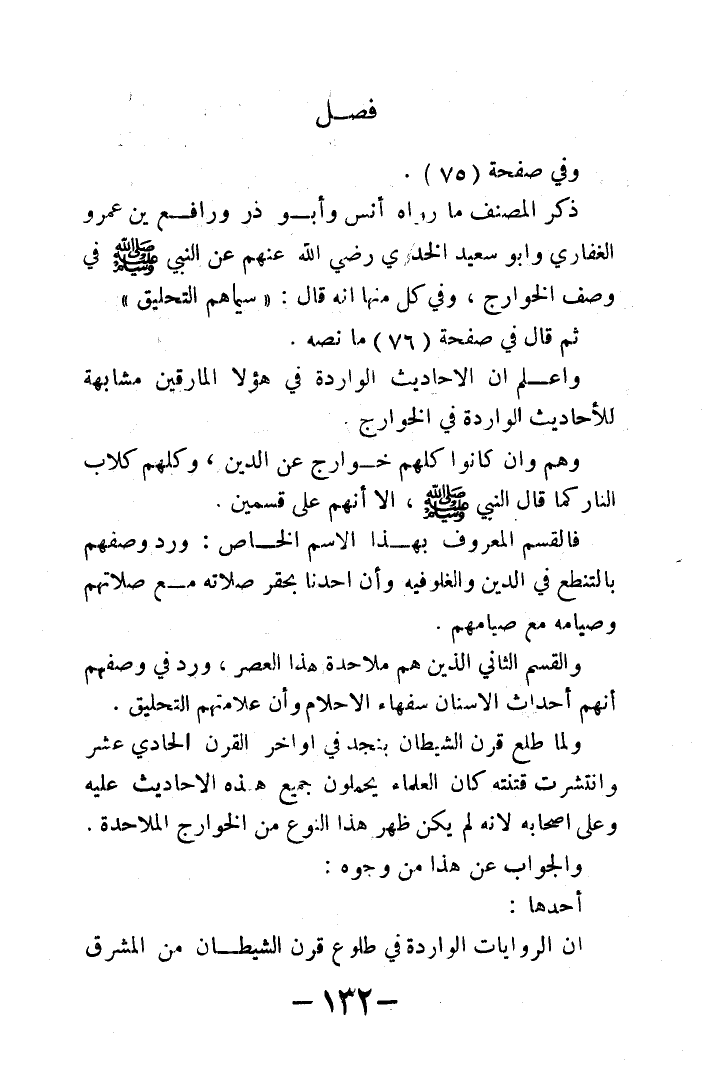 فصل
وفي صفحة (٧٥) .
ذكر المصنف ما رواه أنس وأبو ذر ورافع بن عمرو
الغفاري وابو سعيد الخدري رضي الله عنهم عن النبي ﷺ في
وصف الخوارج ، وفي كل منها انه قال : « سيماهم التحليق »
ثم قال في صفحة (٧٦) ما نصه .
واعلم ان الاحاديث الواردة في هؤلا المارقين مشابهة
للأحاديث الواردة في الخوارج .
وهم وان كانوا كلهم خوارج عن الدين ، وكلهم كلاب
النار كما قال النبي ﷺ ، الا أنهم على قسمين .
فالقسم المعروف بهذا الاسم الخاص : ورد وصفهم
بالتنطع في الدين والغلو فيه وأن احدنا يحقر صلاته مع صلاتهم
وصيامه مع صيامهم .
والقسم الثاني الذين هم ملاحدة هذا العصر ، ورد في وصفهم
أنهم أحداث الاسنان سفهاء الاحلام وأن علامتهم التحليق .
ولما طلع قرن الشيطان بنجد في اواخر القرن الحادي عشر
وانتشرت فتنته كان العلماء يحملون جميع هذه الاحاديث عليه
وعلى اصحابه لانه لم يكن ظهر هذا النوع من الخوارج الملاحدة .
والجواب عن هذا من وجوه :
أحدها :
ان الروايات الواردة في طلوع قرن الشيطان من المشرق
– ١٣٢ –